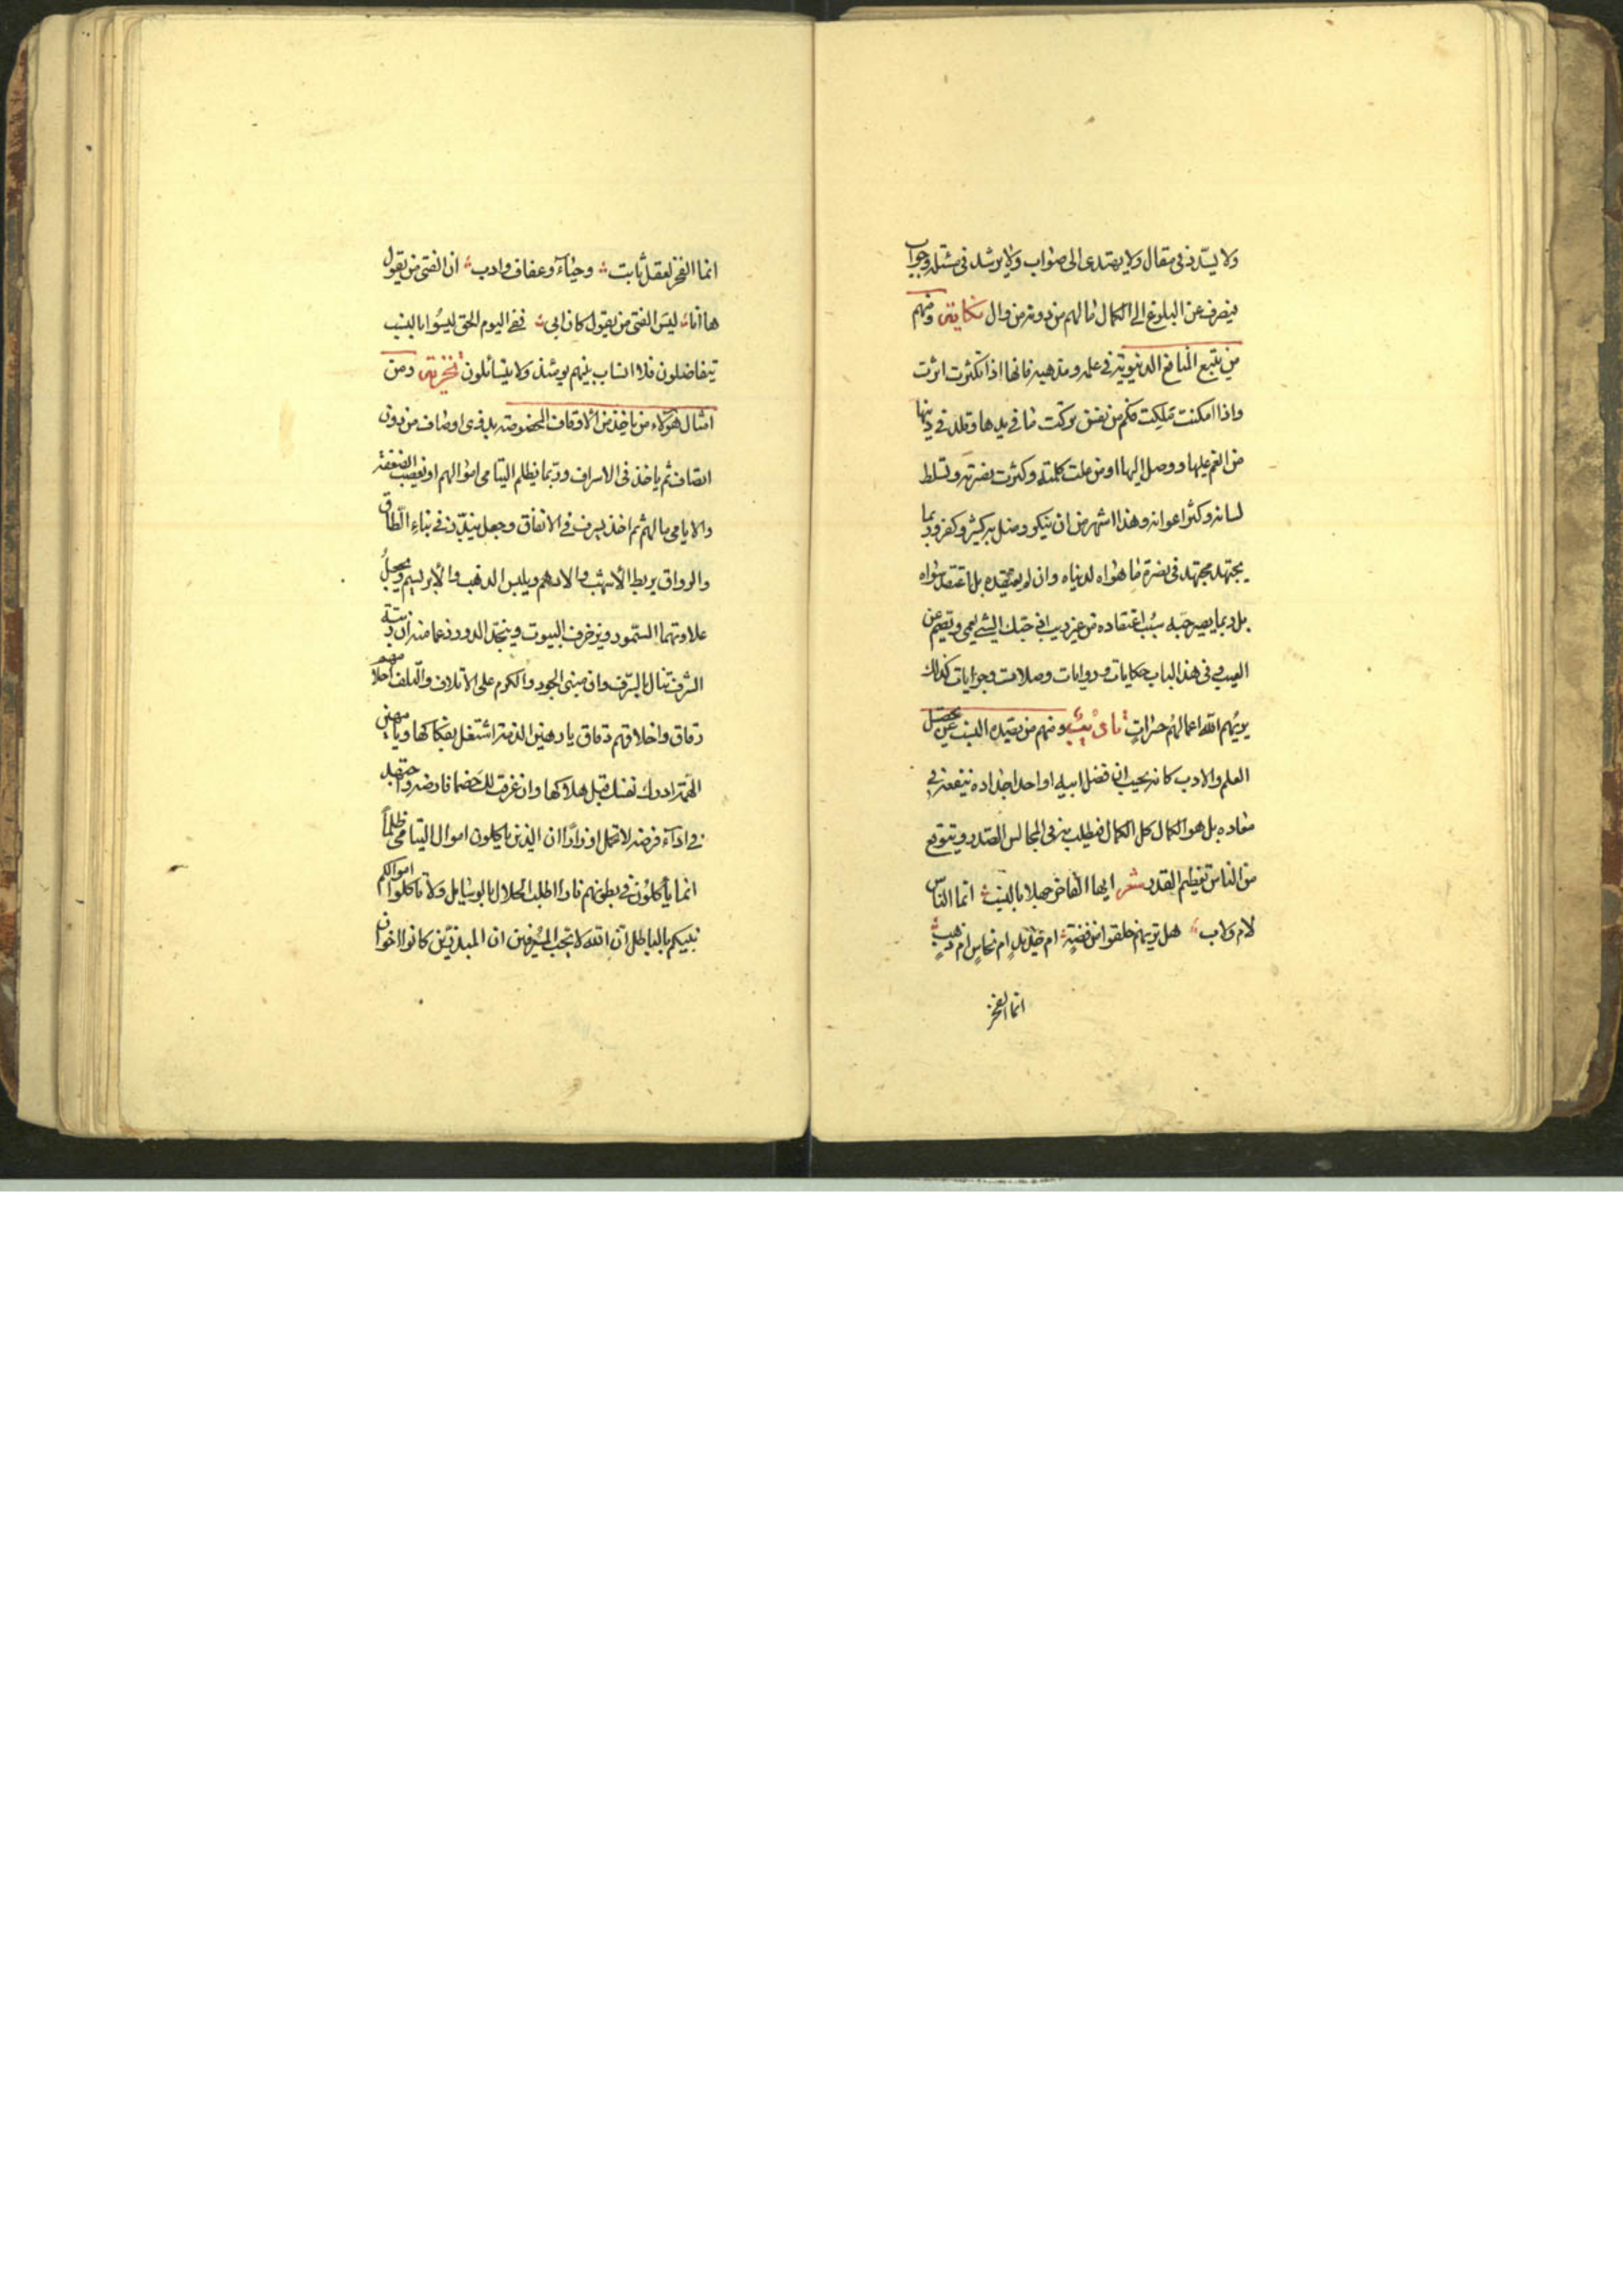 ولا يسدد في مقال ولا يهتدى الى صواب ولا يرشد في مسئلة وجواب
فيصرف عن البلوغ الى الكمال ما لهم من دونه من وال ومنهم
من يتبع المنافع الدنيوية في علمه ومذهبه فانها اذا تكثرت اثرت
واذا امكنت تملكت فكم من نفس تركت ما في يدها وقلدت في دينها
من انعم عليها ووصل اليها او من علت كلمته وكثرت نصرته وتسلط
لسانه وكثر اعوانه وهذا اشهر من ان ينكر وضل به كثير وكفر وربما
يجتهد مجتهد في نصرة ما هواه لدنياه وان لم يعتقده بل اعتقد سواه
بل ربما يصير حبه سبب اعتقاده من غير ريب اذ حبك الشئ يعمى ويصم عن
العيب وفي هذا الباب حكايات وروايات وصلات وجرايات كذلك
يريهم الله اعمالهم حسرات ومنهم من يقيده النسب عن تحصيل
العلم والادب كانه يحسب ان فضل ابيه او احد اجداده ينفعه في
معاده بل هو الكمال كل الكمال فيطلب به في المجالس الصدر ويتوقع
من الناس تعظيم القدر شعر ايها الفاخر جهلا بالنسب انما الناس
لام ولاب هل تريهم خلقوا من فضة ام حديد ام نحاس ام ذهب
انما الفخر
انما الفخر لعقل ثابت وحياء وعفاف وادب ان الفتى من يقول
ها انا ليس الفتى من يقول كان ابى ففي اليوم الحق ليسوا بالنسب
يتفاضلون فلا انساب بينهم يومئذ ولا يتسائلون ومن
امثال هؤلاء من ياخذ من الاوقاف المخصوصة بذوى اوصاف من دون
اتصاف ثم ياخذ في الاسراف وربما يظلم اليتامى اموالهم او يغصب الضعفة
والايامى مالهم ثم اخذ يسرف في الانفاق وجعل يبذر في بناء الطاق
والرواق يربط الاشهب والادهم ويلبس الذهب والابريسم ويجعل
علاوتهما السمور ويزخرف البيوت وينجد الدور زعما منه ان رتبة
الشرف تنال بالسرف وان مبنى الجود والكرم على الاتلاف والتلف احلامهم
دقاق واخلاقهم دقاق يا رهين الذمة اشتغل بفكاكها ويا مهين
الهمة ادرك نفسك قبل هلاكها وان غرقت لك خصما فارضه واجتهد
في اداء فرضه لا تحمل اوزارا ان الذين ياكلون اموال اليتامى ظلما
انما يأكلون في بطونهم نارا اطلب الحلال بالوسايل ولا تأكلوا اموالكم
بينكم بالباطل ان الله لا يحب المسرفين ان المبذرين كانوا اخوان